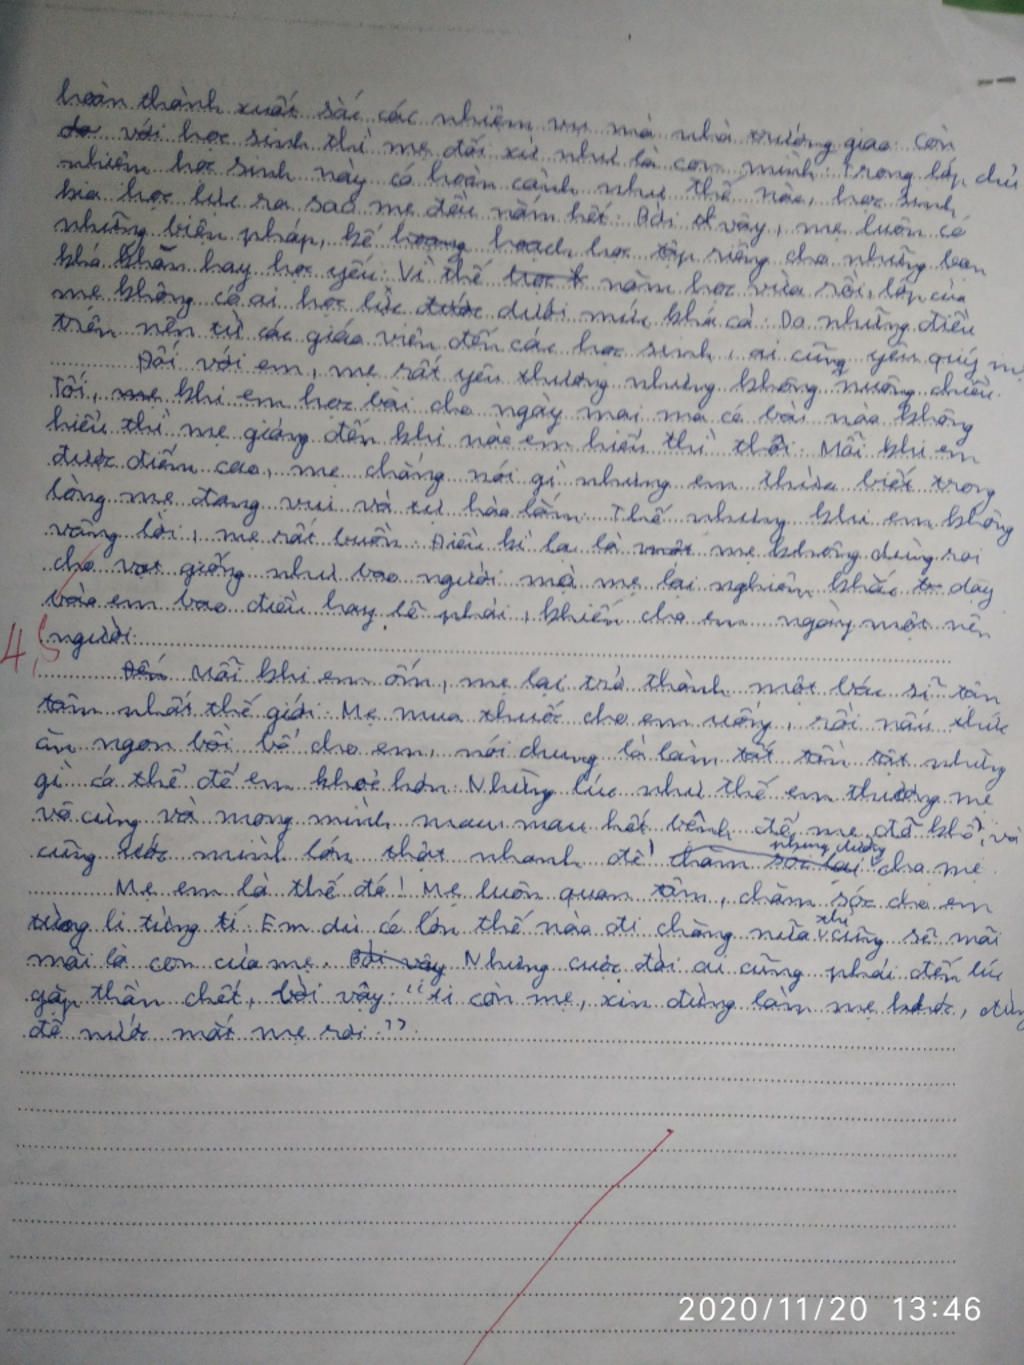 hoàn thành xuất sắc các nhiệm vụ mà nhà trường giao. Còn
với học sinh thì mẹ đối xử như là con mình. Trong lớp chủ
nhiệm học sinh này có hoàn cảnh như thế nào, học sinh
kia học lực ra sao mẹ đều nắm hết. Bởi vậy, mẹ luôn có
những biện pháp, kế hoạch học tập riêng cho những bạn
khó khăn hay học yếu. Vì thế năm học vừa rồi, lớp của
mẹ không có ai học lực dưới mức khá cả. Do những điều
trên nên từ các giáo viên đến các học sinh, ai cũng yêu quý mẹ
Đối với em, mẹ rất yêu thương nhưng không nuông chiều.
Tối, khi em học bài cho ngày mai mà có bài nào không
hiểu thì mẹ giảng đến khi nào em hiểu thì thôi. Mỗi khi em
được điểm cao, mẹ chẳng nói gì nhưng em thừa biết trong
lòng mẹ đang vui và tự hào lắm. Thế nhưng khi em không
vâng lời, mẹ rất buồn. Điều kì lạ là mẹ không dùng roi
giống như bao người mà mẹ lại nghiêm khắc dạy
em bao điều hay lẽ phải, khiến cho em ngày một nên
người.
4,5
Mỗi khi em ốm, mẹ lại trở thành một bác sĩ tận
tâm nhất thế giới. Mẹ mua thuốc cho em uống, rồi nấu thức
ăn ngon bồi bổ cho em, nói chung là làm tất tần tật những
gì có thể để em khoẻ hơn. Những lúc như thế em thương mẹ
vô cùng và mong mình mau mau hết bệnh để mẹ đỡ khổ, và
cũng ước mình lớn thật nhanh để phụng dưỡng cha mẹ.
Mẹ em là thế đó! Mẹ luôn quan tâm, chăm sóc cho em
từng li từng tí. Em dù có lớn thế nào đi chăng nữa thì cũng sẽ mãi
mãi là con của mẹ. Nhưng cuộc đời ai cũng phải đến lúc
gặp thần chết, bởi vậy: "Ai còn mẹ, xin đừng làm mẹ khóc, đừng
để nước mắt mẹ rơi."
2020/11/20 13:46